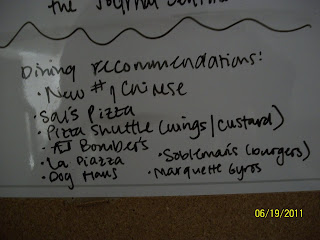 the Journal Sentinel
Dining recommendations:
• New #1 Chinese
• Sal's Pizza
• Pizza Shuttle (wings/custard)
• AJ Bombers
• La Piazza
• Sobleman's (burgers)
• Dog Haus
• Marquette Gyros
06/19/2011